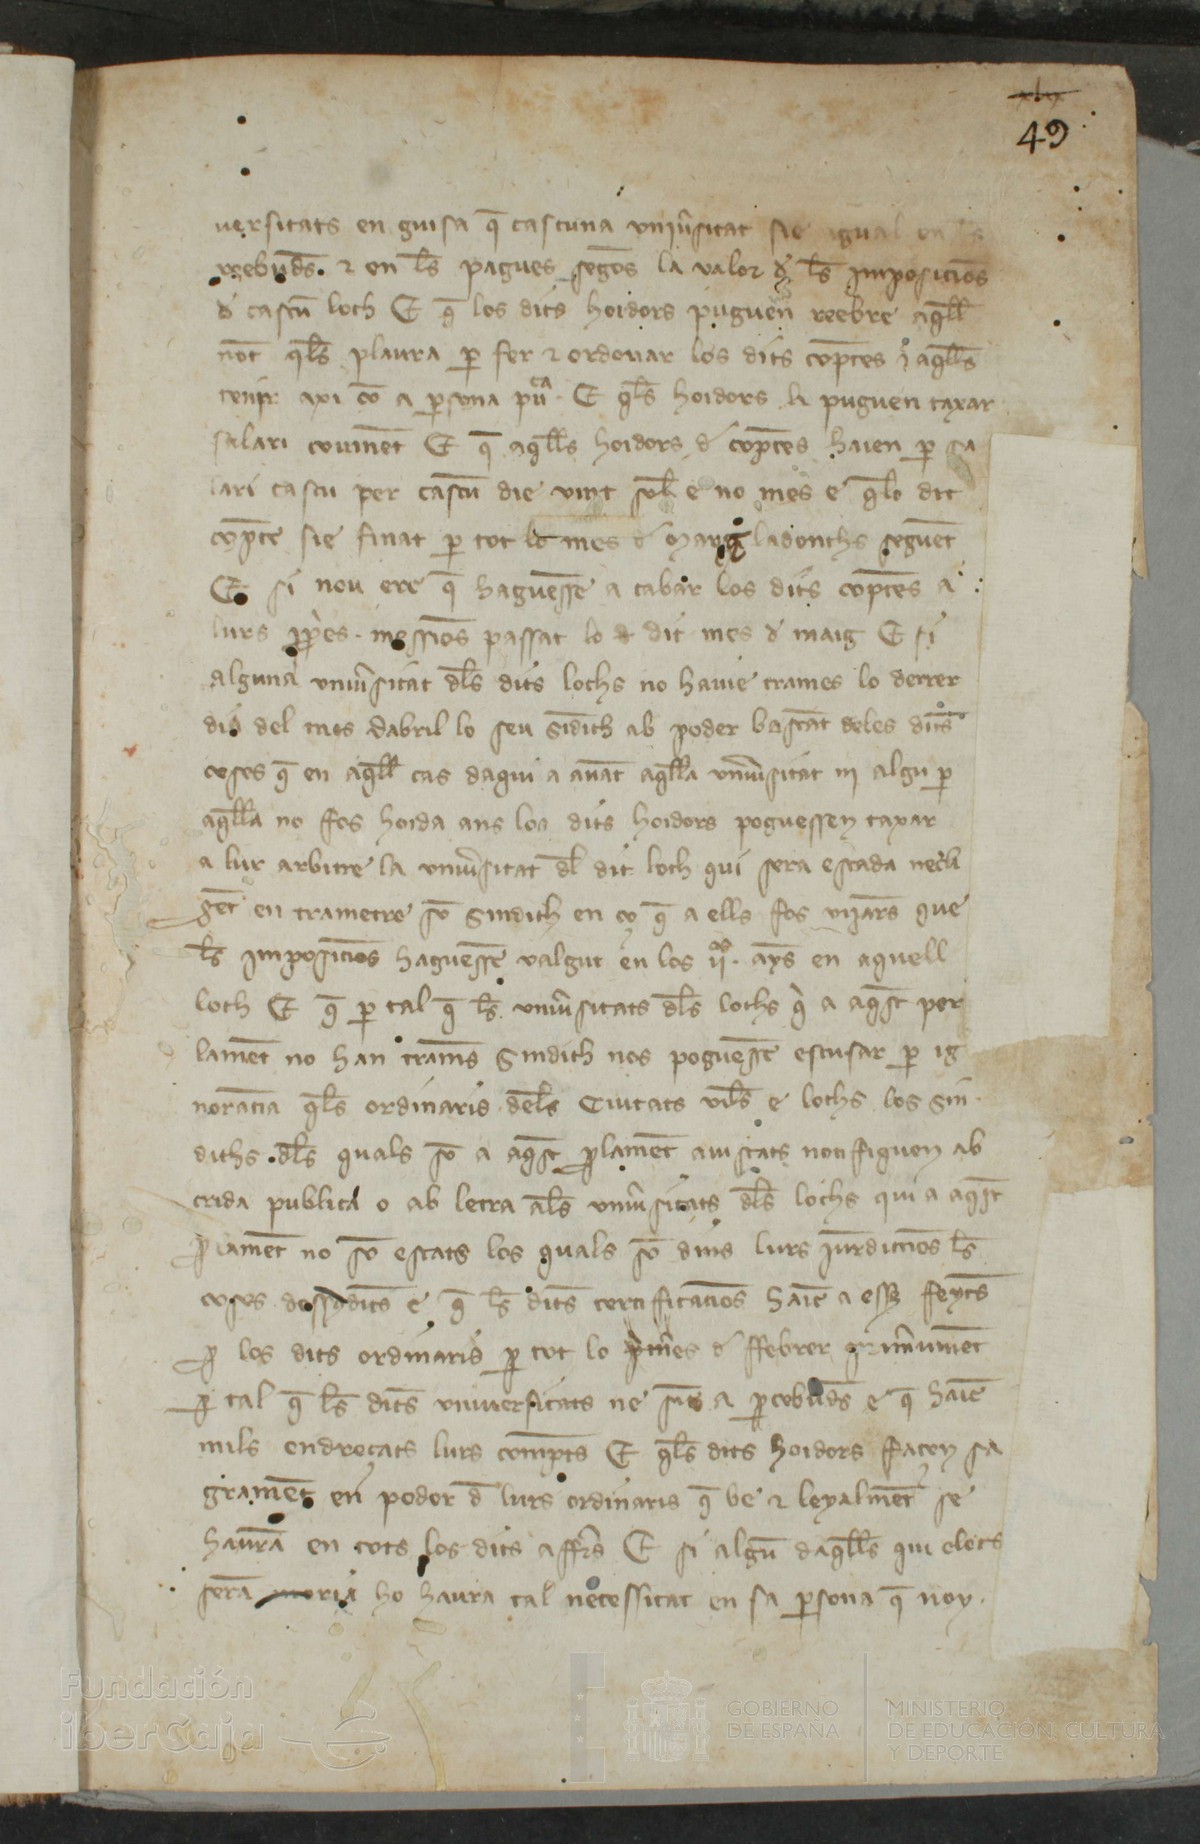 xlix
49
uersitats en guisa q̄ cascuna uniũsitat sie igual en
reebudes. ⁊ en l̄s pagues segōs la valor đ l̄s Imposiciōs
đ cascū loch E q̄ los dits hoidors puguen reebre aq̄ll
not q̄ls plaura p̄ fer ⁊ ordonar los dits cop̄tes ⁊ aq̄lls
tenir axi cō a p̄sona pu̅ca. E q̄ls hoidors li puguen taxar
salari couinēt E q̄ aq̄lls hoidors đ cop̄tes haien p̄ sa
lari cascu per cascū die vint sol̄ e no mes e q̄lo dit
cop̄te sie finat p̄ tot lo mes đ març ladonchs seguēt
E si nou ere q̄ haguessē a cabar los dits cop̄tes a
lurs p̄p̄es. messiōs passat lo dit mes đ maig E si
alguna uniũsitat dl̄s dits lochs no hauie trames lo derrer
dia del mes dabril lo seu sīdich ab poder bastāt deles dits
coses q̄ en aq̄ll cas daqui a auāt aq̄lla uniũsitat ni algu p̄
aq̄lla no fos hoida ans los dits hoidors poguessen taxar
a lur arbitre la uniũsitat dl̄ dit loch qui sera estada necli
gēt en trametre sō sindich en ço q̄ a ells fos vijarès que
l̄s Imposiciōs haguessē valgut en los ij. ays en aquell
loch E q̄ p̄ tal q̄ l̄s uniũsitats dl̄s lochs q̄ a aq̄st per
lamēt no han trames sindich nos poguessē escusar p̄ ig
norācia q̄ls ordinaris dels Ciutats vil̄s e lochs los sin
dichs dl̄s quals sō a aq̄st p̄lamēt auistats notifiquen ab
crida publica o ab letra al̄s uniũsitats dl̄s lochs qui a aq̄st
p̄lamēt no sō estats los quals sō dins lurs Iurdiccions l̄s
coses dessᵃdites e q̄ l̄s dits certificaciōs haie a esser feyts
p̄ los dits ordinaris p̄ tot lo mes đ ffebrer
p̄ tal q̄ l̄s dits uniuersitats ne siē a p̄cebudes e q̄ haiē
mils endreçats lurs compts E q̄ls dits hoidors facen sa
gramēt en poder đ lurs ordinaris q̄ be ⁊ leyalmēt se
haurā en tots los dits affrs E si algū daq̄lls qui elets
serā moria ho haura tal necessitat en sa p̄sona q̄ noy.
Fundación
iberCaja
GOBIERNO
DE ESPAÑA
MINISTERIO
DE EDUCACIÓN, CULTURA
Y DEPORTE